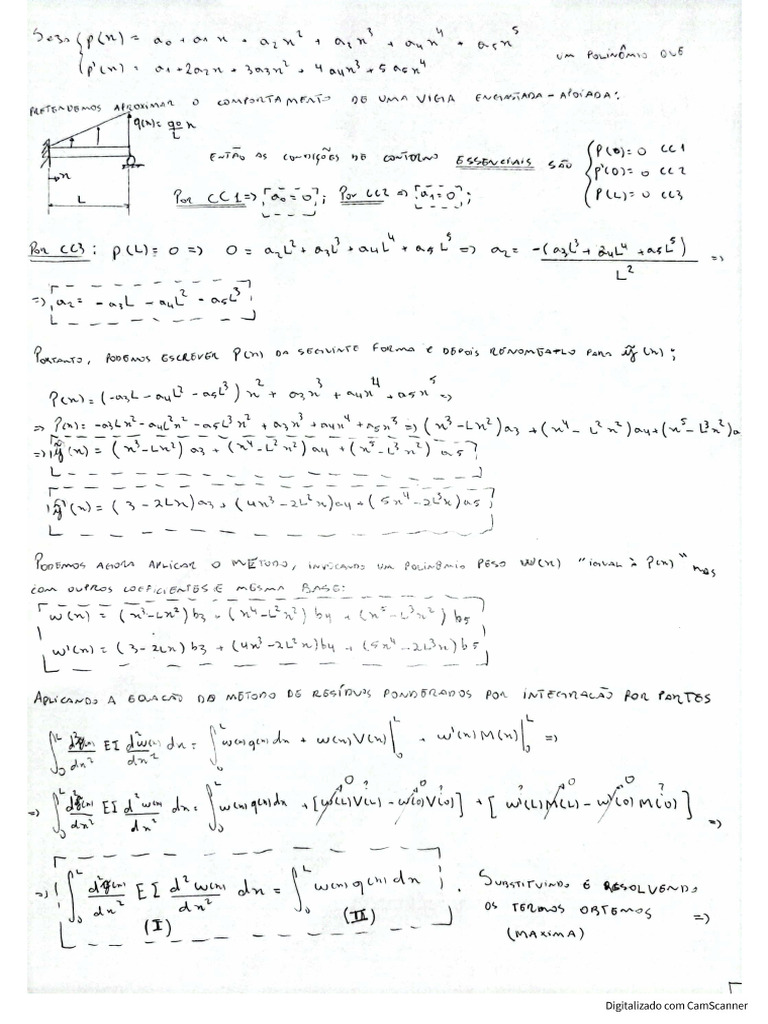 SEJA { p(x) = a0 + a1x + a2x² + a2x³ + a4x⁴ + a5x⁵
{ p'(x) = a1 + 2a2x + 3a3x² + 4a4x³ + 5a5x⁴ UM POLINÔMIO QUE
PRETENDEMOS APROXIMAR O COMPORTAMENTO DE UMA VIGA ENGASTADA-APOIADA:
q(x) = q0/L x
x
L
ENTÃO AS CONDIÇÕES DE CONTORNO ESSENCIAIS SÃO { P(0)=0 CC1
p'(0)=0 CC2
P(L)=0 CC3
POR CC1 => a0 = 0; POR CC2 => a1 = 0;
POR CC3: p(L) = 0 => 0 = a2L² + a3L³ + a4L⁴ + a5L⁵ => a2 = -(a3L³ + a4L⁴ + a5L⁵) / L² =>
=> a2 = -a3L - a4L² - a5L³
PORTANTO, PODEMOS ESCREVER P(x) DA SEGUINTE FORMA E DEPOIS RENOMEA-LO PARA ỹ(x);
P(x) = (-a3L - a4L² - a5L³) x² + a3x³ + a4x⁴ + a5x⁵ =>
=> P(x) = -a3Lx² - a4L²x² - a5L³x² + a3x³ + a4x⁴ + a5x⁵ => (x³ - Lx²)a3 + (x⁴ - L²x²)a4 + (x⁵ - L³x²)a
=> ỹ(x) = (x³ - Lx²) a3 + (x⁴ - L²x²) a4 + (x⁵ - L³x²) a5
ỹ'(x) = (3 - 2Lx)a3 + (4x³ - 2L²x)a4 + (5x⁴ - 2L³x)a5
PODEMOS AGORA APLICAR O MÉTODO, INVOCANDO UM POLINÔMIO PESO W(x) "IGUAL À P(x)" MAS
COM OUTROS COEFICIENTES E MESMA BASE:
w(x) = (x³ - Lx²) b3 + (x⁴ - L²x²) b4 + (x⁵ - L³x²) b5
w'(x) = (3 - 2Lx) b3 + (4x³ - 2L²x) b4 + (5x⁴ - 2L³x) b5
APLICANDO A EQUAÇÃO DO MÉTODO DE RESÍDUOS PONDERADOS POR INTEGRAÇÃO POR PARTES
∫₀ᴸ d²ỹ(x)/dx² EI d²w(x)/dx² dx = ∫₀ᴸ w(x)q(x)dx + w(x)V(x)|₀ᴸ + w'(x)M(x)|₀ᴸ =>
=> ∫₀ᴸ d²ỹ(x)/dx² EI d²w(x)/dx² dx = ∫₀ᴸ w(x)q(x)dx + [w(L)V(L) - w(0)V(0)] + [w'(L)M(L) - w'(0)M(0)] =>
=> ∫₀ᴸ d²ỹ(x)/dx² EI d²w(x)/dx² dx = ∫₀ᴸ w(x)q(x)dx .
(I) (II)
SUBSTITUINDO E RESOLVENDO
OS TERMOS OBTEMOS =>
(MAXIMA)
Digitalizado com CamScanner